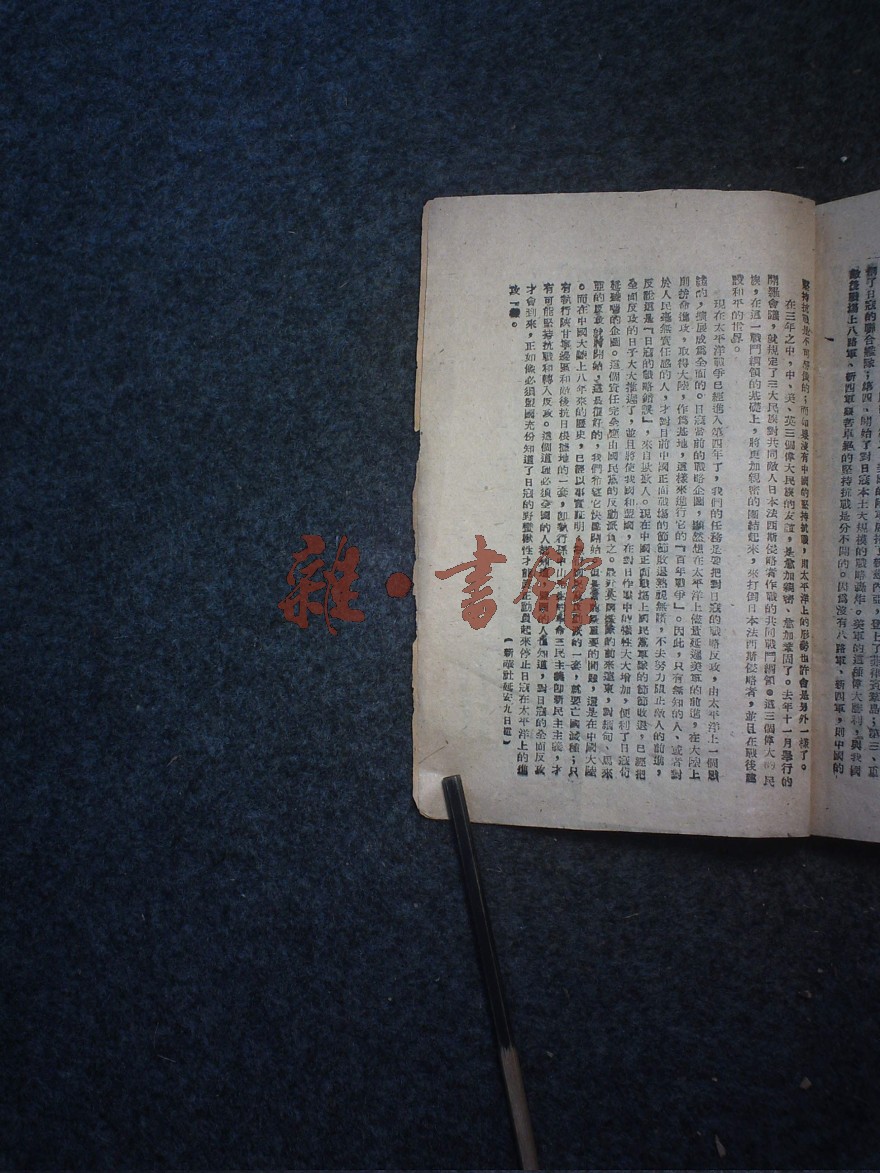 擊了日寇的聯合艦隊；第四、開始了對日寇本土大規模的戰略轟炸。美軍的這種偉大勝利，與我國
敵後戰場上八路軍、新四軍艱苦卓絕的堅持抗戰是分不開的。因爲沒有八路軍、新四軍，則中國的
堅持抗戰是不可想像的；而如果沒有中國的堅持抗戰，則太平洋上的形勢也許會是另外一樣了。
在三年之中，中、美、英三個偉大民族的友誼，是愈加親密、愈加鞏固了。去年十一月舉行的
開羅會議，就規定了三大民族對共同敵人日本法西斯侵略者作戰的共同戰鬥綱領。這三個偉大的民
族，在這一戰鬥綱領的基礎上，將更加親密的團結起來，來打倒日本法西斯侵略者，並且在戰後建
設和平的世界。
現在太平洋戰爭已經進入第四年了，我們的任務是要把對日寇的戰略反攻，由太平洋上一個戰
線的，擴展成爲全面的。日寇當前的戰略企圖，顯然想在太平洋上儘量延遲美軍的前進，在大陸上
則拚命進攻，取得大陸，作爲基地，這樣來進行它的『百年戰爭』。因此，只有無知的人、或者對
於人民毫無責任感的人，才對目前中國正面戰場的節節敗退熟視無睹，不去努力阻止敵人的前進，
反說這是『日寇的戰略錯誤』，來自欺欺人。現在中國正面戰場上國民黨軍隊的節節敗退，已經把
全面反攻的日子大大推遲了，並且將使我國和盟國，在對日作戰中的犧牲大大增加，便利了日寇苟
延殘喘的企圖。這個責任完全應由國民黨的反動派負之。最近英國艦隊的動來遠東，對緬甸、馬來
亞的反攻就將開始，這是很好的，我們希望它快些開始。但是最主要的問題，還是在中國大陸
。而在中國大陸上八年來的歷史，已經以事實証明，的一套，就要亡國滅種；只
有執行陝甘寧邊區和敵後抗日根據地的一套，即執行孫中山革命三民主義即新民主主義，才
有可能堅持抗戰和轉入反攻。這個道理必須全國的人都知道，盟國的人也知道，對日寇的全面反攻
才會到來，正如他必須盟國充份知道了日寇的野蠻獸性才能眞正動員起來停止日寇在太平洋上的進
攻一樣。
（新華社延安九日電）
雜·書館